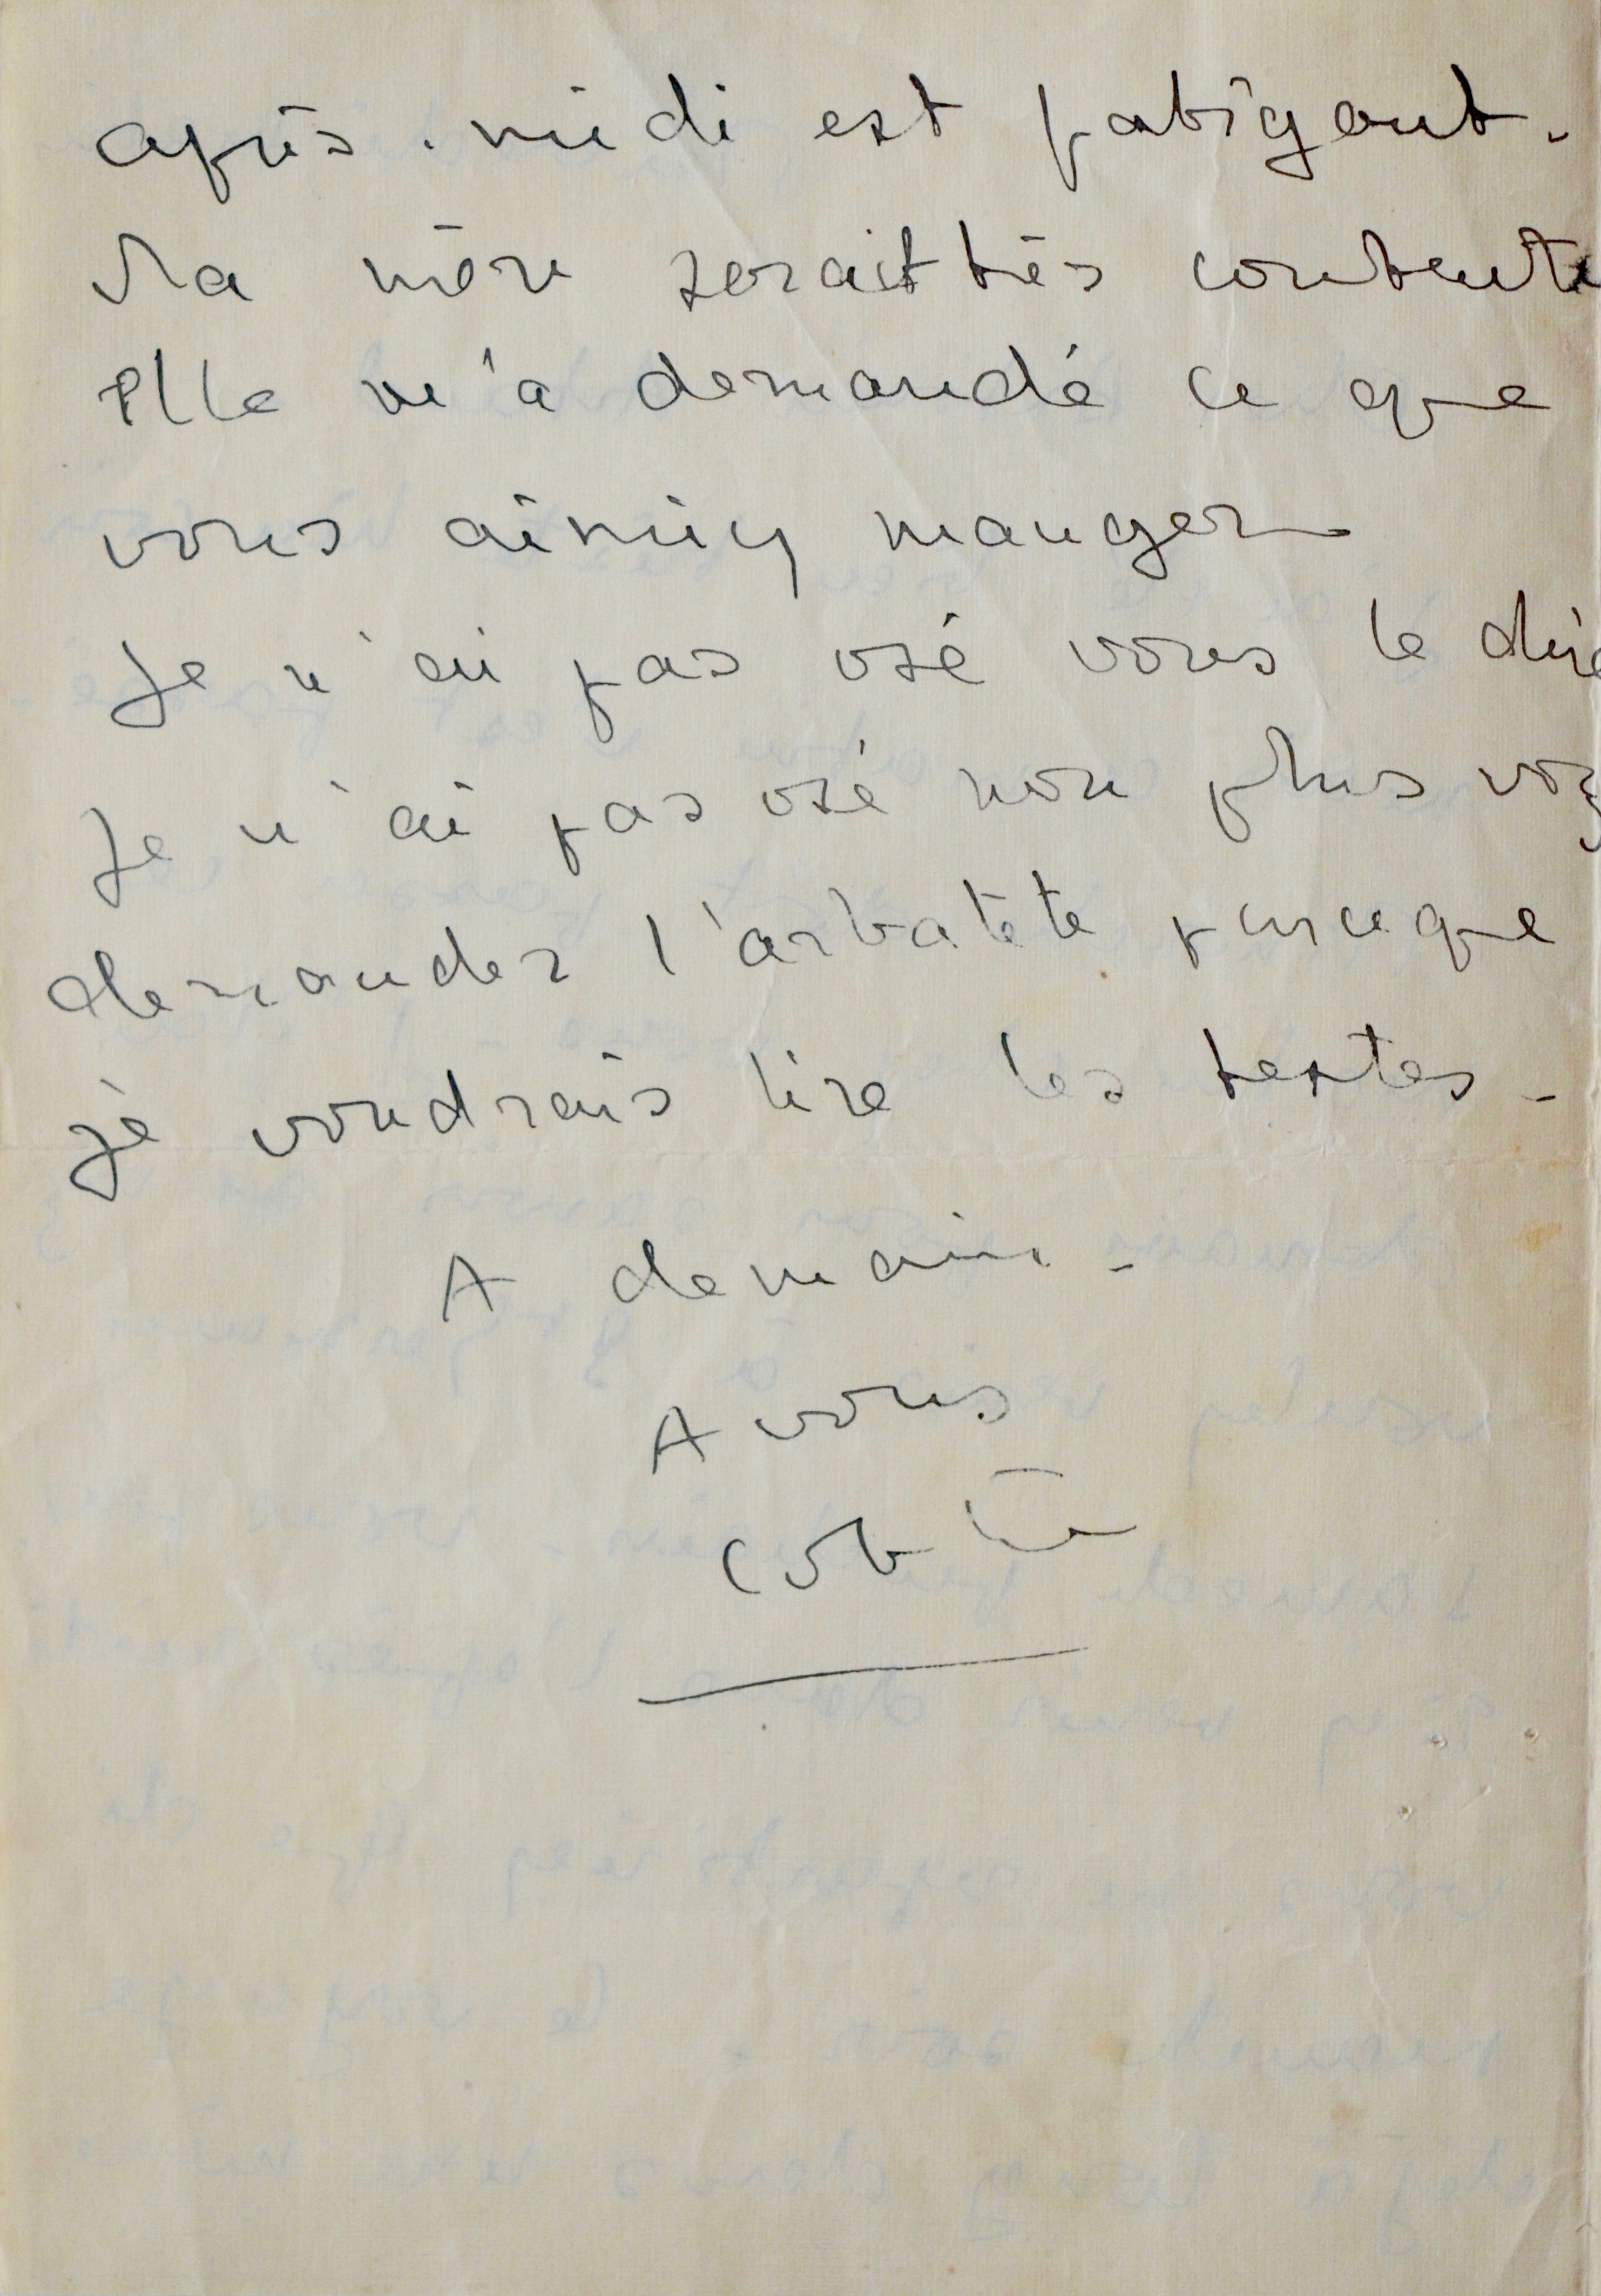 après-midi est fatigant.
Ma mère serait très contente
Elle m'a demandé ce que
vous aimiez manger
Je n'ai pas osé vous le dire
Je n'ai pas osé non plus vous
demander l'arbalète parce que
je voudrais lire les textes -
A demain -
A vous